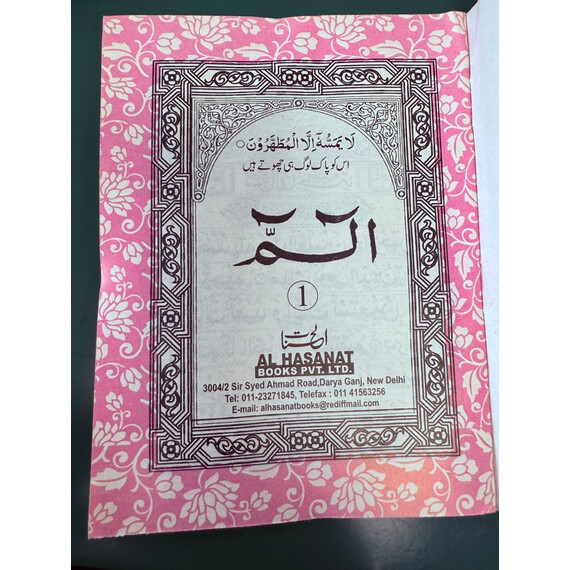 لَا يَمَسُّهٗۤ اِلَّا الْمُطَهَّرُوْنَ ○
اس کو پاک لوگ ہی چھوتے ہیں
الٓـمّٓ
1
الحسنات
AL HASANAT
BOOKS PVT. LTD.
3004/2 Sir Syed Ahmad Road,Darya Ganj, New Delhi
Tel: 011-23271845, Telefax : 011 41563256
E-mail: alhasanatbooks@rediffmail.com